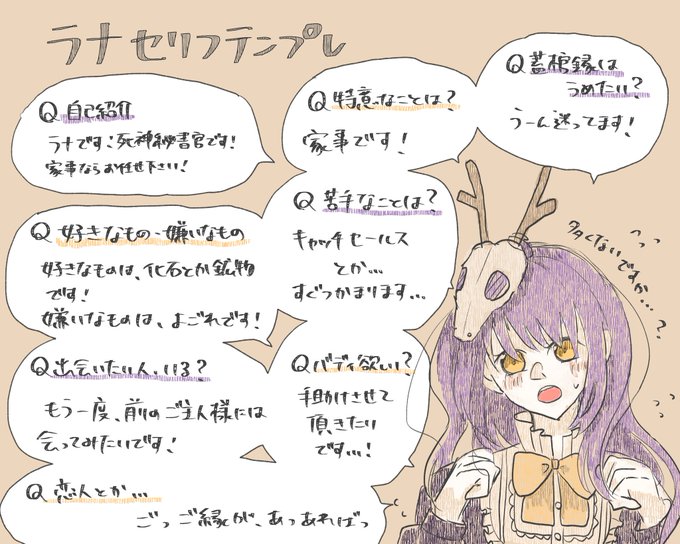 ラナ セリフテンプレ
Q 自己紹介
ラナです!死神秘書官です!
家事ならお任せ下さい!
Q 特意なことは?
家事です!
Q 蓋棺縁は
うめたい?
うーん迷ってます!
Q 好きなもの・嫌いなもの
好きなものは、化石とか鉱物
です!
嫌いなものは、よごれです!
Q 苦手なことは?
キャッチセールス
とか…
すぐつかまります…
多くないですか…?
Q 出会いたい人、いる?
もう一度、前のご主人様には
会ってみたいです!
Q バディ欲しい?
手助けさせて
頂きたい
です…!
Q 恋人とか…
ごっご縁が、あっあればっ